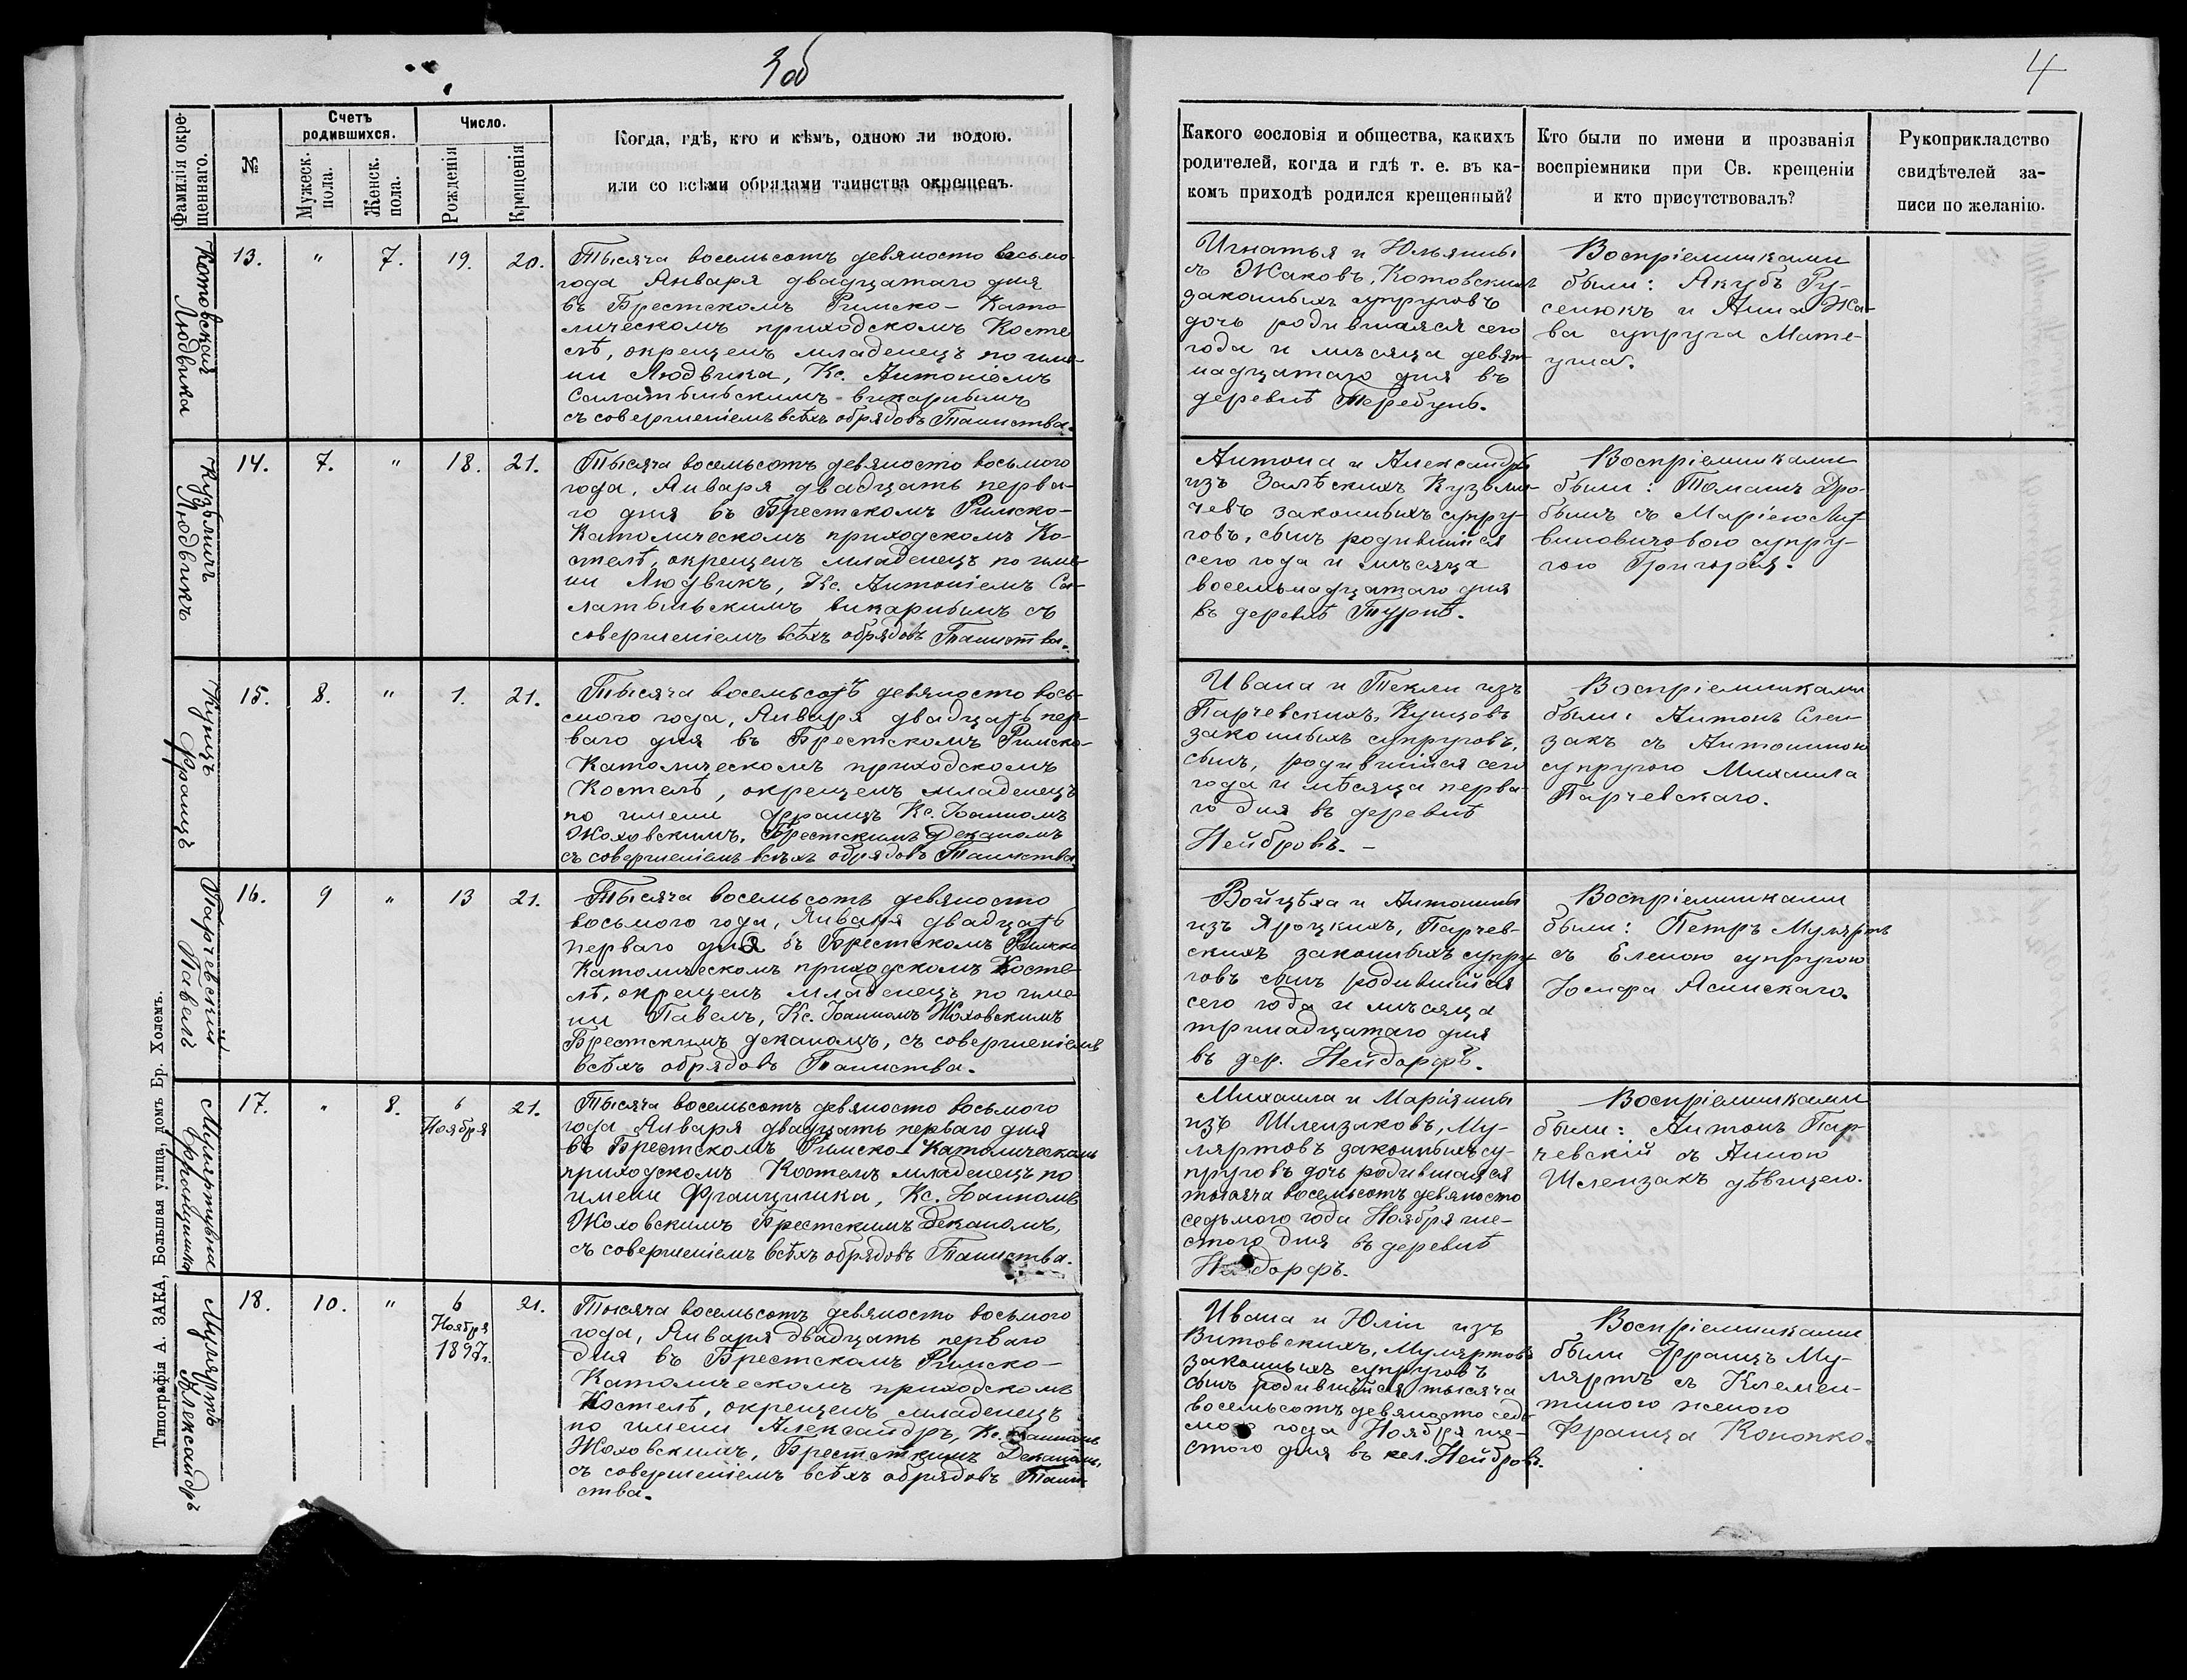 3об
4
Фамилія окре-
щеннаго.
№
Счетъ
родившихся.
Мужеск.
пола.
Женск.
пола.
Число.
Рожденія
Крещенія
Когда, гдѣ, кто и кѣмъ, одною ли водою.
или со всѣми обрядами таинства окрещенъ.
Какого сословія и общества, какихъ
родителей, когда и гдѣ т. е. въ ка-
комъ приходѣ родился крещенный?
Кто были по имени и прозванія
воспріемники при Св. крещеніи
и кто присутствовалъ?
Рукоприкладство
свидѣтелей за-
писи по желанію.
Котовская
Людвика
13.
"
7.
19.
20.
Тысяча восемьсотъ девяносто восьмо
года Января двадцатаго дня
въ Брестскомъ Римско-Като
лическомъ приходскомъ Косте
лѣ, окрещенъ младенецъ по име-
ни Людвика, Кс. Антоніемъ
викарнымъ
съ совершеніемъ всѣхъ обрядовъ Таинства.
Игнатья и Юльянны
съ Жаковъ, Котовскихъ
законныхъ супруговъ
дочь родившаяся сего
года и мѣсяца девят
надцатаго дня въ
деревнѣ Теребунь.
Воспріемниками
были: Якубъ Ру-
сенюкъ и Анна Жа-
ва супруга Мате-
уша.
Кузьмичъ
Людвикъ
14.
7.
"
18.
21.
Тысяча восемьсотъ девяносто восьмого
года, Января двадцать перва-
го дня въ Брестскомъ Римско-
Католическомъ приходскомъ Ко-
стелѣ, окрещенъ младенецъ по име-
ни Людвикъ, Кс. Антоніемъ
викарнымъ съ
совершеніемъ всѣхъ обрядовъ Таинства.
Антона и Александры
изъ Залѣскихъ Кузьми-
чевъ законныхъ супру-
говъ, сынъ родившійся
сего года и мѣсяца
восемьнадцатаго дня
въ деревнѣ Турнѣ.
Воспріемниками
были: Томашъ Дро-
бышъ съ Маріею Лит-
виновичовою супру-
гою Григорія.
Купцъ
Францъ
15.
8.
"
1.
21.
Тысяча восемьсотъ девяносто вось-
смого года, Января двадцать пер-
ваго дня въ Брестскомъ Римско-
Католическомъ приходскомъ
Костелѣ, окрещенъ младенецъ
по имени Францъ Кс. Іоанномъ
Жоховскимъ, Брестскимъ Деканомъ
съ совершеніемъ всѣхъ обрядовъ Таинства.
Ивана и Текли изъ
Парчевскихъ, Купцовъ
законныхъ супруговъ,
сынъ, родившійся сего
года и мѣсяца перва-
го дня въ деревнѣ
Нейбровъ. -
Воспріемниками
были: Антонъ Слен-
закъ съ Антониною
супругою Михаила
Парчевскаго.
Парчевскій
Павелъ
16.
9
"
13
21.
Тысяча восемьсотъ девяносто
восьмого года, Января двадцать
перваго дня въ Брестскомъ Римско
Католическомъ приходскомъ Косте-
лѣ, окрещенъ младенецъ по име-
ни Павелъ, Кс. Іоанномъ Жоховскимъ
Брестскимъ деканомъ, съ совершеніемъ
всѣхъ обрядовъ Таинства.
Войцѣха и Антонины
изъ Яроцкихъ, Парчев-
скихъ законныхъ супру-
говъ сынъ родившійся
сего года и мѣсяца
тринадцатаго дня
въ дер. Нейдорфъ.
Воспріемниками
были: Петръ Мулярть
съ Еленою супругою
Іосифа Ясинскаго.
Мулярт
Францишка
17.
"
8.
6
Ноября
21.
Тысяча восемьсотъ девяносто восьмого
года Января двадцать перваго дня
въ Брестскомъ Римско-Католическомъ
приходскомъ Костелъ младенецъ по
имени Францишка, Кс. Іоанномъ
Жоховскимъ Брестскимъ Деканомъ,
съ совершеніемъ всѣхъ обрядовъ Таинства.
Михаила и Маріянны
изъ Шлензаковъ, Му-
ляртовъ законныхъ су-
пруговъ дочь родившаяся
тысяча восемьсотъ девяносто
седьмого года Ноября ше-
стого дня въ деревнѣ
Нейдорфъ.
Воспріемниками
были: Антонъ Пар-
чевскій съ Анною
Шлензакъ дѣвицею.
Мулярть
Александръ
18.
10.
"
6
Ноября
1897г.
21.
Тысяча восемьсотъ девяносто восьмого
года, Января двадцать перваго
дня въ Брестскомъ Римско-
Католическомъ приходскомъ
Костелѣ, окрещенъ младенецъ
по имени Александръ, Кс. Іоанномъ
Жоховскимъ, Брестскимъ Деканомъ,
съ совершеніемъ всѣхъ обрядовъ Таин-
ства.
Ивана и Юліи изъ
Витовскихъ, Муляртовъ
законныхъ супруговъ
сынъ родившійся тысяча
восемьсотъ девяносто седь-
мого года Ноября ше-
стого дня въ кол. Нейбровъ.
Воспріемниками
были Францъ Му-
лярть съ Клемен-
тиною женою
Франца Конопко.
Типографія А. ЗАКА, Большая улица, домъ Бр. Холемъ.